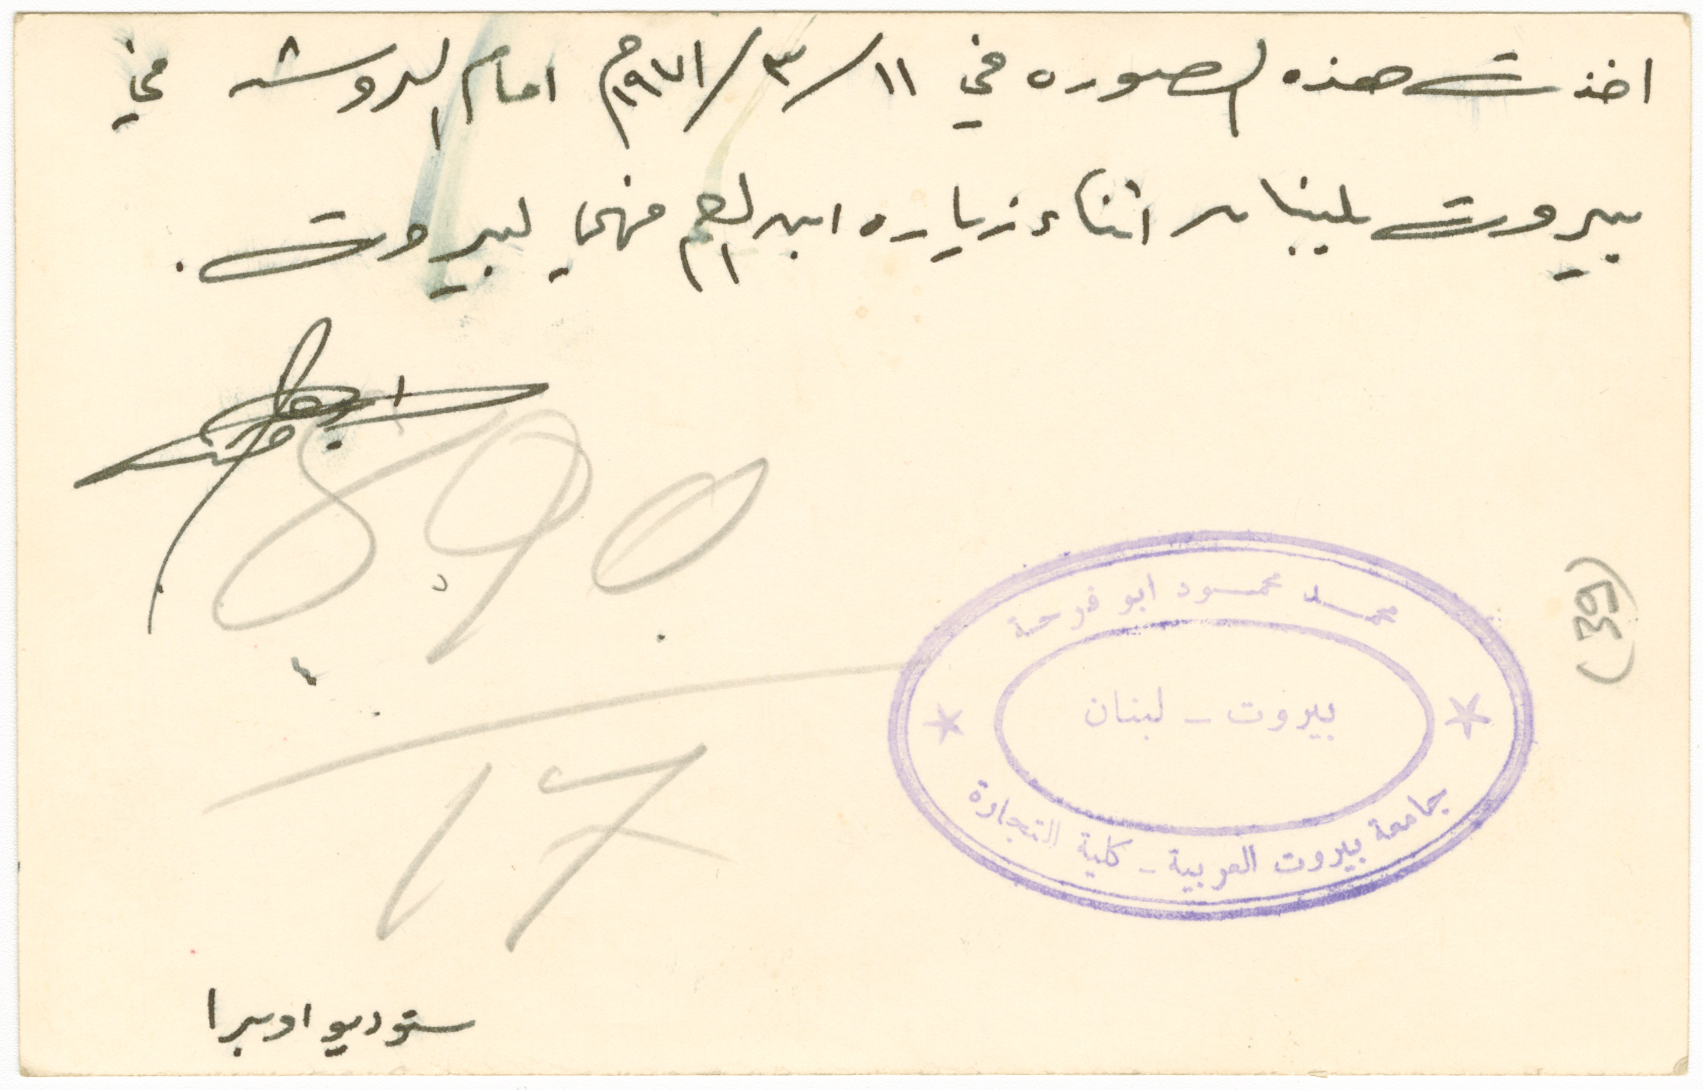 اخذت هذه الصوره في ١١/٣/١٩٧١م امام الروشه في
بيروت بلبنان اثناء زياره ابراهيم فهمي لبيروت.
890
17
محمد محمود ابو فرحة
بيروت - لبنان
جامعة بيروت العربية - كلية التجارة
(39)
ستوديو اوبرا